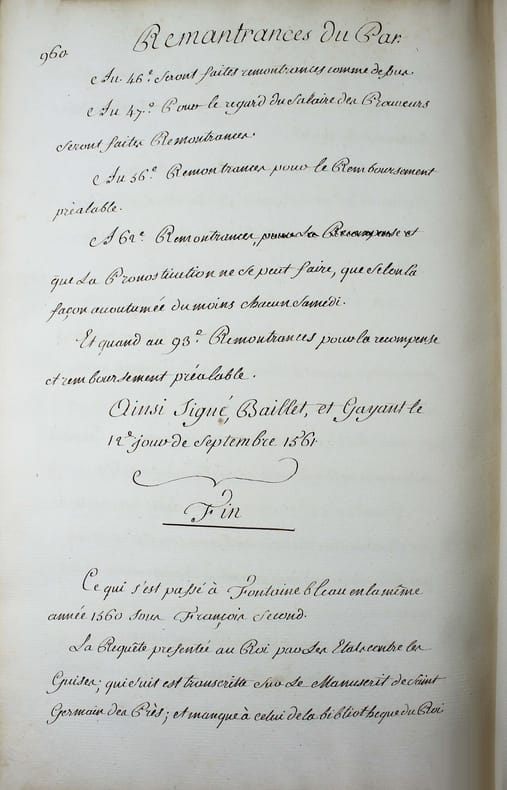 960.
Remontrances du Par.
Au 46.e Seront faites remontrances comme dessus.
Au 47.e Pour le regard du Salaire des Procureurs
Seront faites Remontrances.
Au 56.e Remontrances pour le Remboursement
préalable.
A 62.e Remontrances, pour la Recompense et
que La Pronostitution ne se peut faire, que selon la
façon accoutumée du moins chacun Samedi.
Et quand au 93.e Remontrances pour la recompense
et remboursement préalable.
Ainsi Signé, Baillet, et Gayant le
12.e jour de Septembre 1561
Fin
Ce qui s'est passé à Fontainebleau en la même
année 1560 sous François Second.
La Requête presentée au Roi par Les Etats contre les
Guises; qui suit est transcritte sur Le Manuscrit de Saint
Germain des Près; et manque à celui de la bibliotheque du Roi